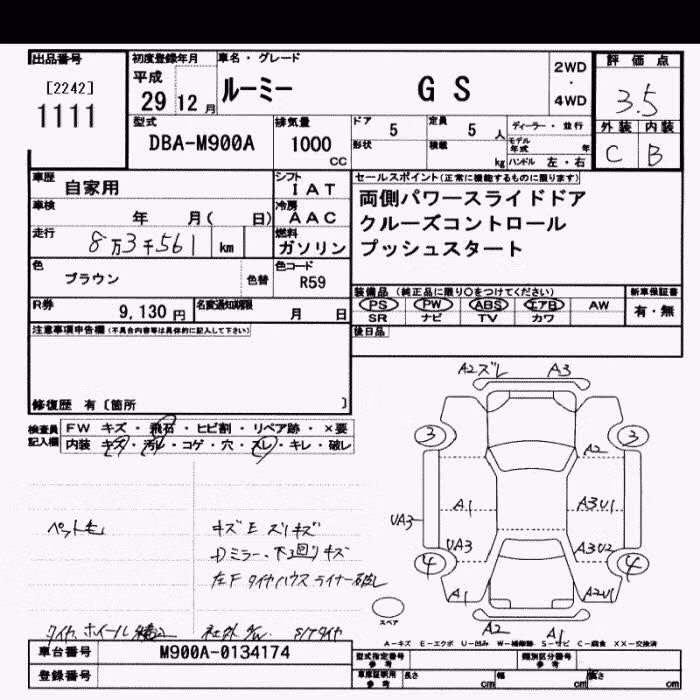 出品番号
[2242]
1111
初度登録年月
平成
29 12 月
車名・グレード
ルーミー GS
2WD
・
4WD
評価点
3.5
外装 内装
C B
型式
DBA-M900A
排気量
1000
CC
ドア 5
形状
定員 5 人
積載 kg
ディーラー・並行
モデル年式 年
ハンドル 左・右
車歴 自家用
車検 年 月( 日)
走行 8万3千561 km
色 ブラウン 色替
シフト IAT
冷房 AAC
燃料 ガソリン
色コード R59
セールスポイント(正常に機能するものに限ります)
両側パワースライドドア
クルーズコントロール
プッシュスタート
R券 9,130 円
名変通知期限 月 日
装備品(純正品に限り○をつけてください)
PS PW ABS エアB AW
SR ナビ TV カワ
新車保証書
有・無
後日品
注意事項申告欄(不具合内容等は具体的に記入して下さい)
修復歴 有〔箇所 〕
検査員
記入欄
FW キズ・飛石・ヒビ割・リペア跡・×要
内装 キズ・汚れ・コゲ・穴・スレ・キレ・破レ
ペット毛
キズ E ズリキズ
Dミラー、下回りキズ
左F タイヤハウスライナー破レ
A2ズレ A3
3 3
A2
A1 A3U1
UA3
UA3 A3U2
4 4
A1 A2U1
A2 A1
スペア
A-キズ E-エクボ U-凹み W-補修跡 S-サビ C-腐食 XX-交換済
車台番号 M900A-0134174
登録番号
型式指定番号
参考
類別区分番号
参考
車庫証明用
参考
長さ cm 幅 cm 高さ cm